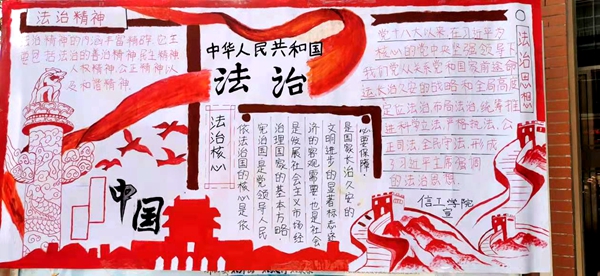 法治精神
法治精神的内涵丰富精辟,它主
要包括法治的善治精神,民主精神
人权精神,公正精神以
及和谐精神
中华人民共和国
法治
法治核心
依法治国的核心是依
宪治国是党领导人民
治理国家的基本方略
是发展社会主义市场经
济的客观需要也是社会
文明进步的显著标志还
是国家长治久安的
必要保障
中国
法治思想
党十八大以来,在习近平为
核心的党中央坚强领导下
我们党从关系党和国家前途命
运长治久安的战略和全局高度
定位法治布局法治,统筹推
进科学立法,严格执法,公
正司法,全民守法,形成
了习近平主席强调
的法治思想
信工学院
宣